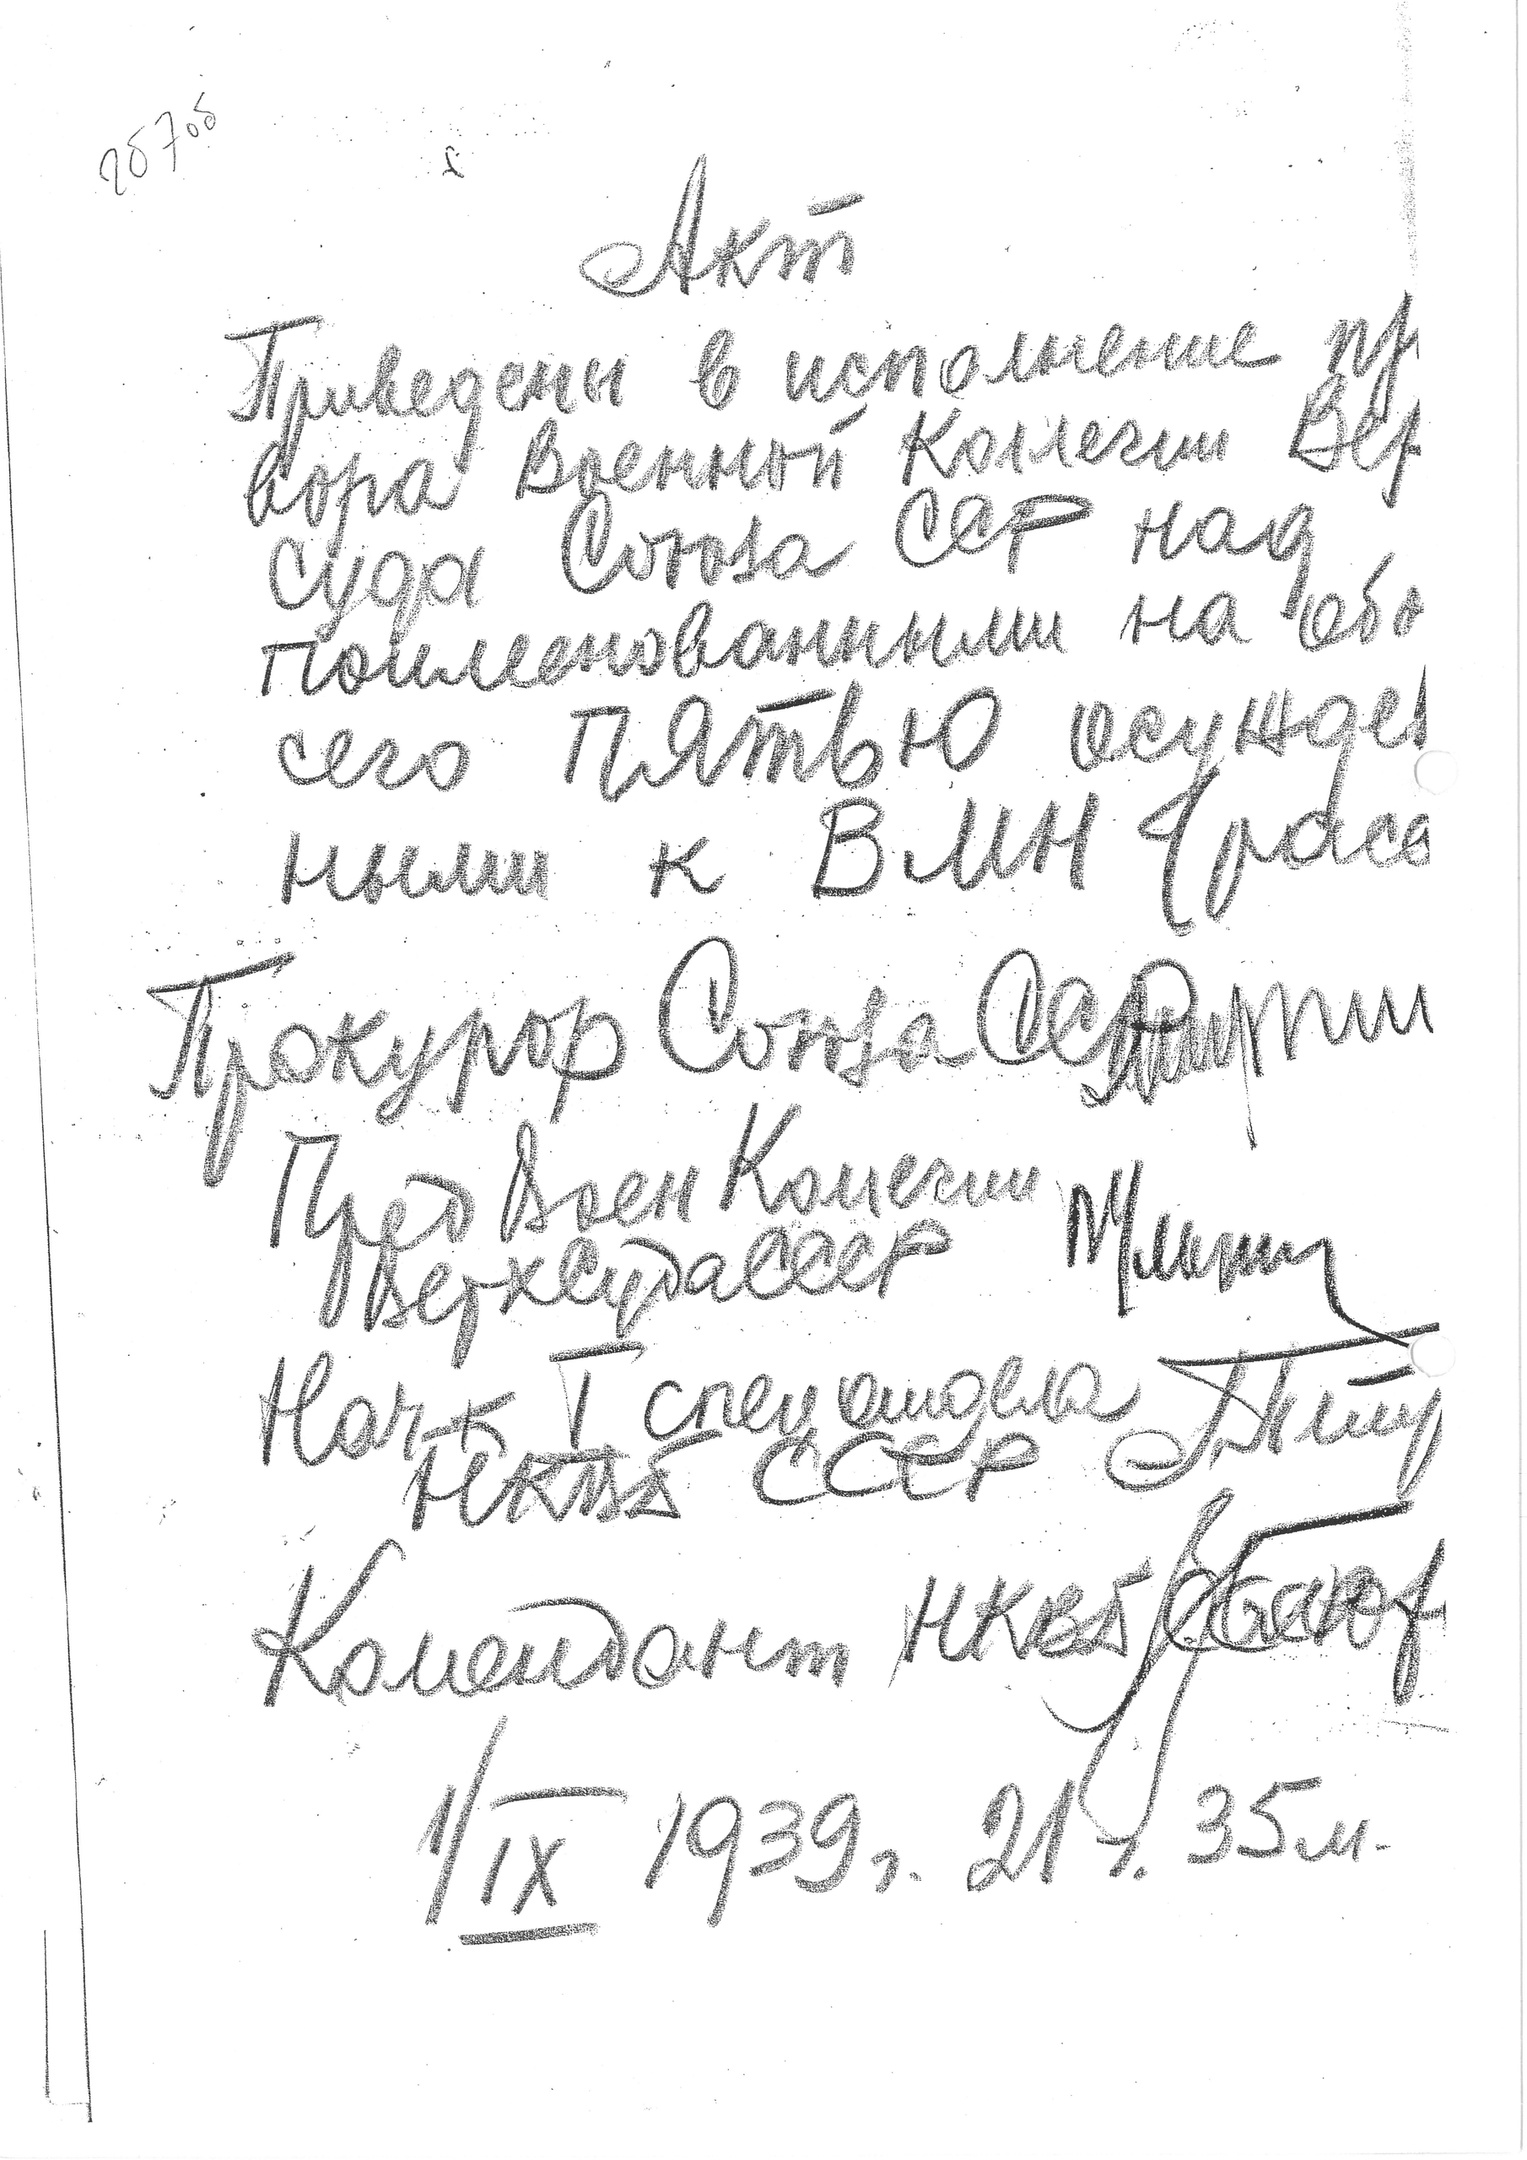 257об
Акт
Приведены в исполнение пр
вора Военной Коллегии Вер
суда Союза ССР над
поименованными на обо
сего Пятью осужден
ными к ВМН (расс
Прокурор Союза ССР
Пред Воен Коллегии
ВерхСуда СССР
Нач-к I спецотдела
НКВД СССР
Комендант НКВД
1/IX 1939 г. 21 ч. 35 м.